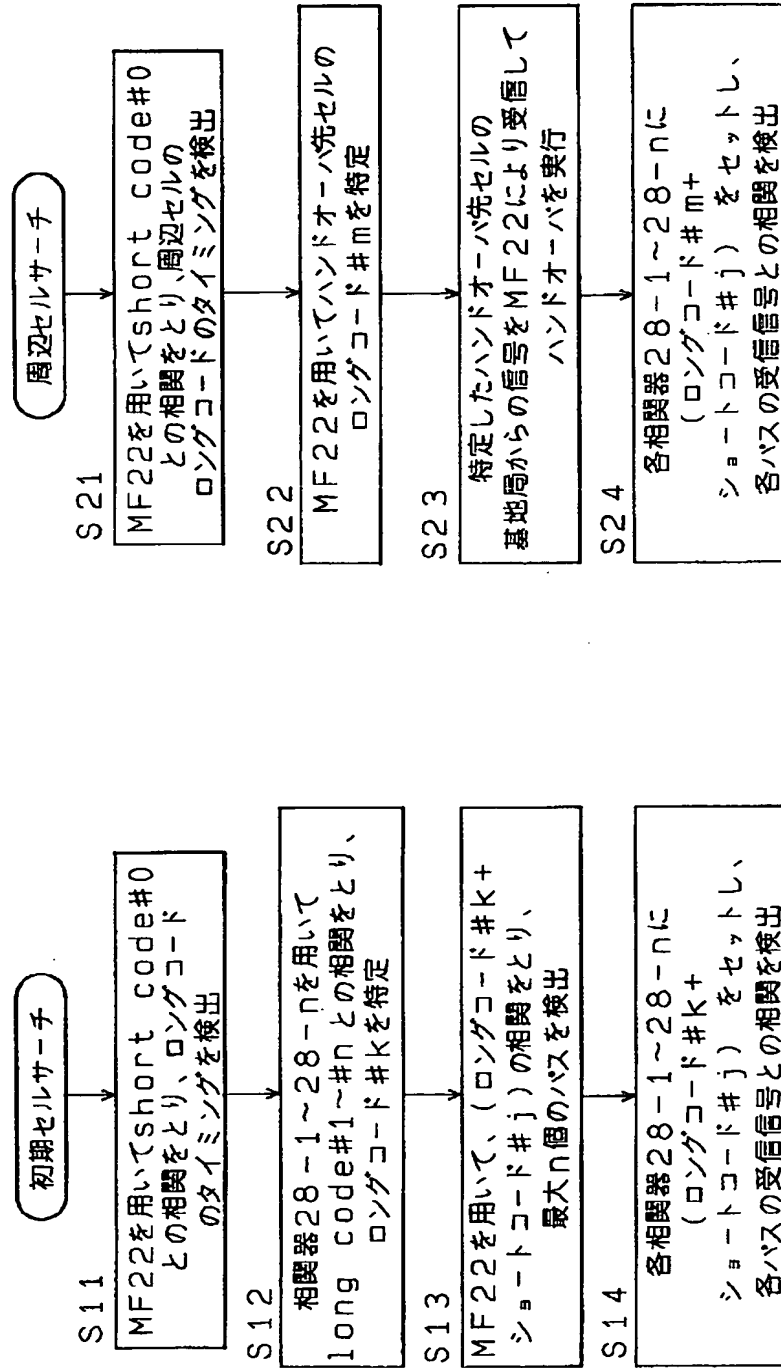 初期セルサーチ
S11
MF22を用いてshort code#0
との相関をとり、ロングコード
のタイミングを検出
S12
相関器28-1~28-nを用いて
long code#1~#nとの相関をとり、
ロングコード#kを特定
S13
MF22を用いて、(ロングコード#k+
ショートコード#j)の相関をとり、
最大n個のパスを検出
S14
各相関器28-1~28-nに
(ロングコード#k+
ショートコード#j) をセットし、
各パスの受信信号との相関を検出
周辺セルサーチ
S21
MF22を用いてshort code#0
との相関をとり、周辺セルの
ロングコードのタイミングを検出
S22
MF22を用いてハンドオーバ先セルの
ロングコード#mを特定
S23
特定したハンドオーバ先セルの
基地局からの信号をMF22により受信して
ハンドオーバを実行
S24
各相関器28-1~28-nに
(ロングコード#m+
ショートコード#j) をセットし、
各パスの受信信号との相関を検出